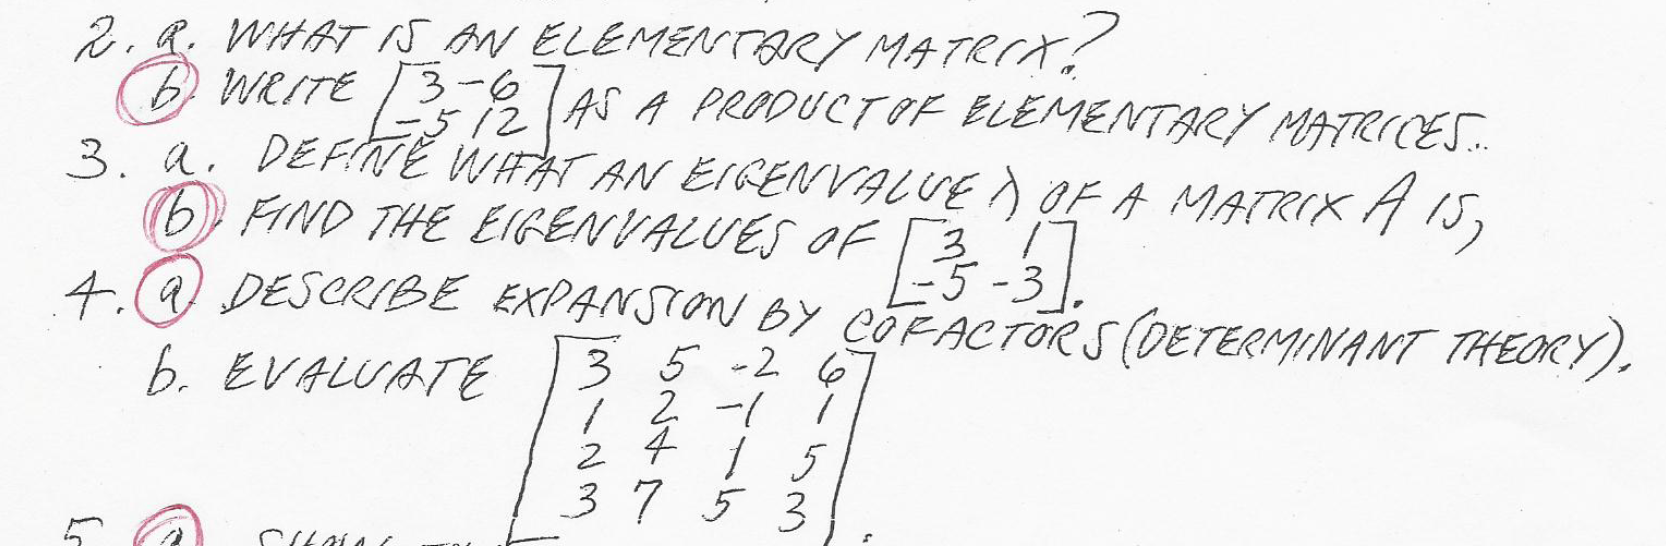 2. a. WHAT IS AN ELEMENTARY MATRIX?
b. WRITE [3 -6
-5 12] AS A PRODUCT OF ELEMENTARY MATRICES..
3. a. DEFINE WHAT AN EIGENVALUE λ OF A MATRIX A IS,
b. FIND THE EIGENVALUES OF [3 1
-5 -3].
4. a. DESCRIBE EXPANSION BY COFACTORS (DETERMINANT THEORY).
b. EVALUATE [3 5 -2 6
1 2 -1 1
2 4 1 5
3 7 5 3].
5. a